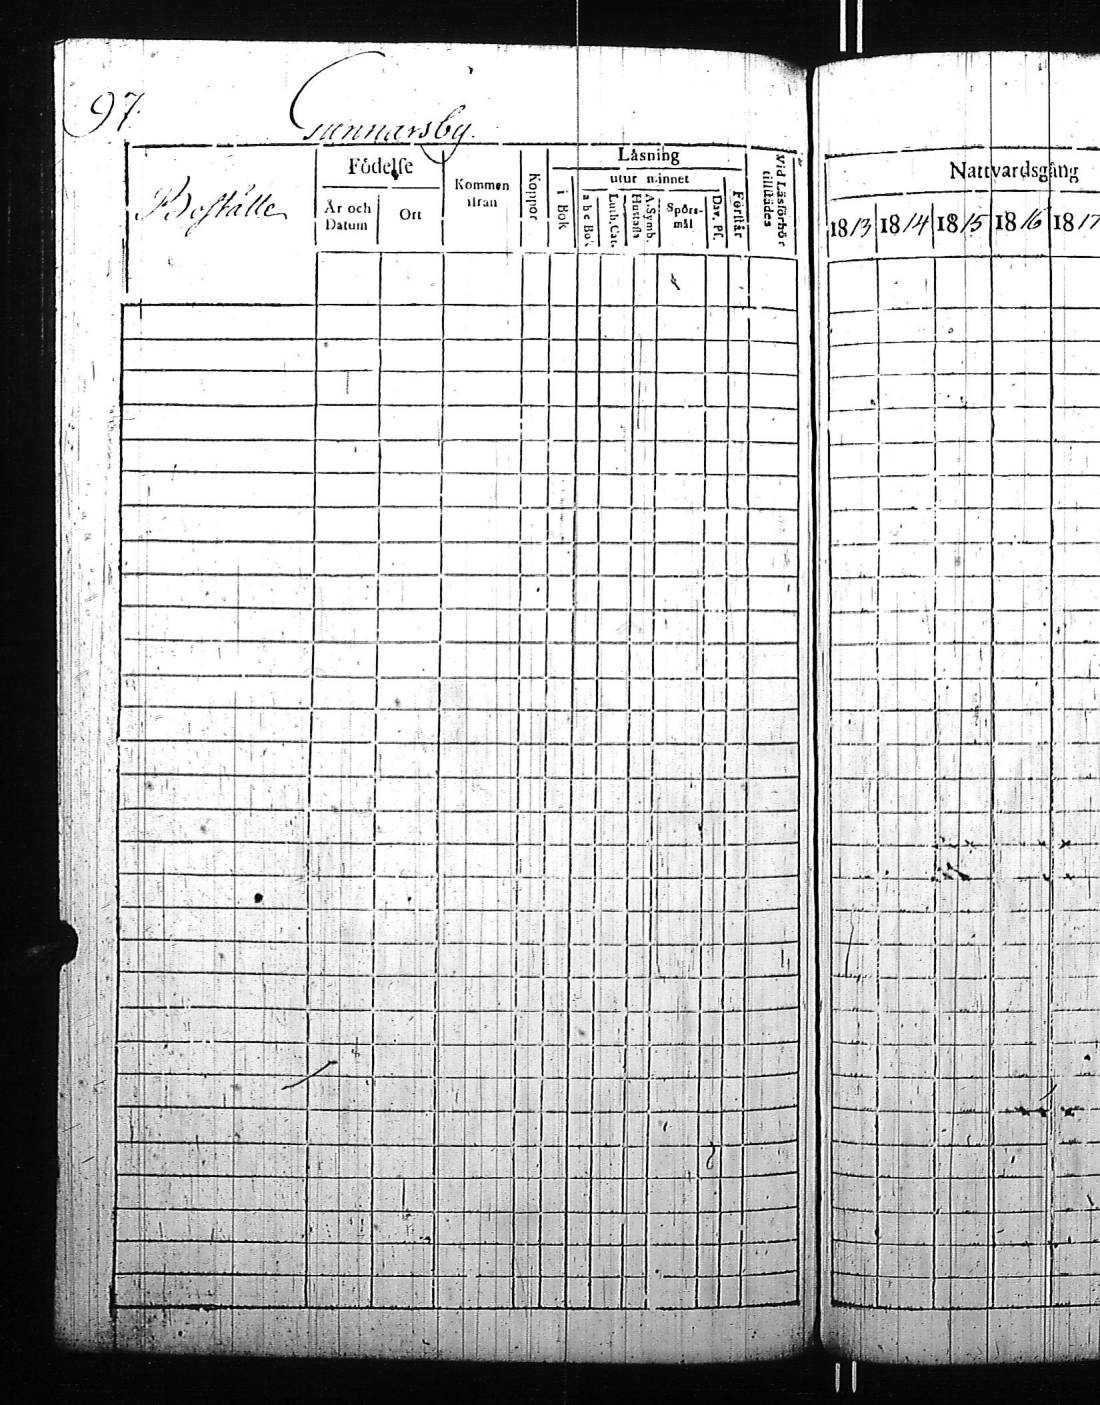 97.
Gunnarsby
Boställe
Födelse
År och Datum
Ort
Kommen ifrån
Koppor
Läsning
utur minnet
i Bok
a b c Bok
Luth. Cat.
A. Symb. Hustafla
Spörsmål
Dav. Ps.
Förstår
Vid Läsförhör tillstädes
Nattvardsgång
1813 1814 1815 1816 1817